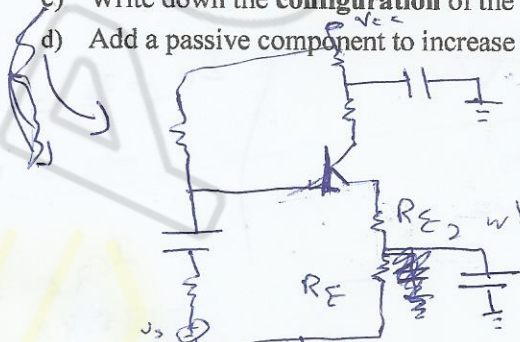 c) Write down the configuration of the
d) Add a passive component to increase
Vcc
RE2
RE